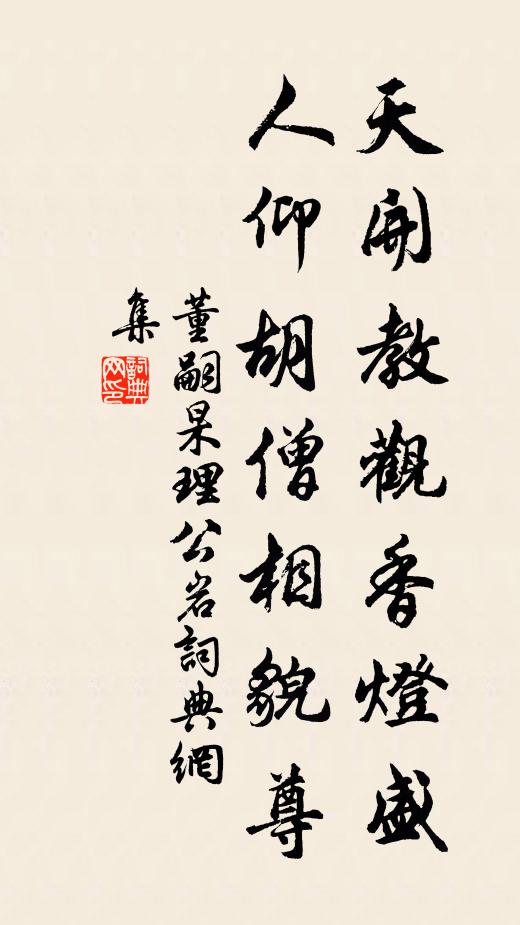 天開教觀香燈盛
人仰胡僧相貌尊
董嗣杲理公岩詞典網
集
詞典網印